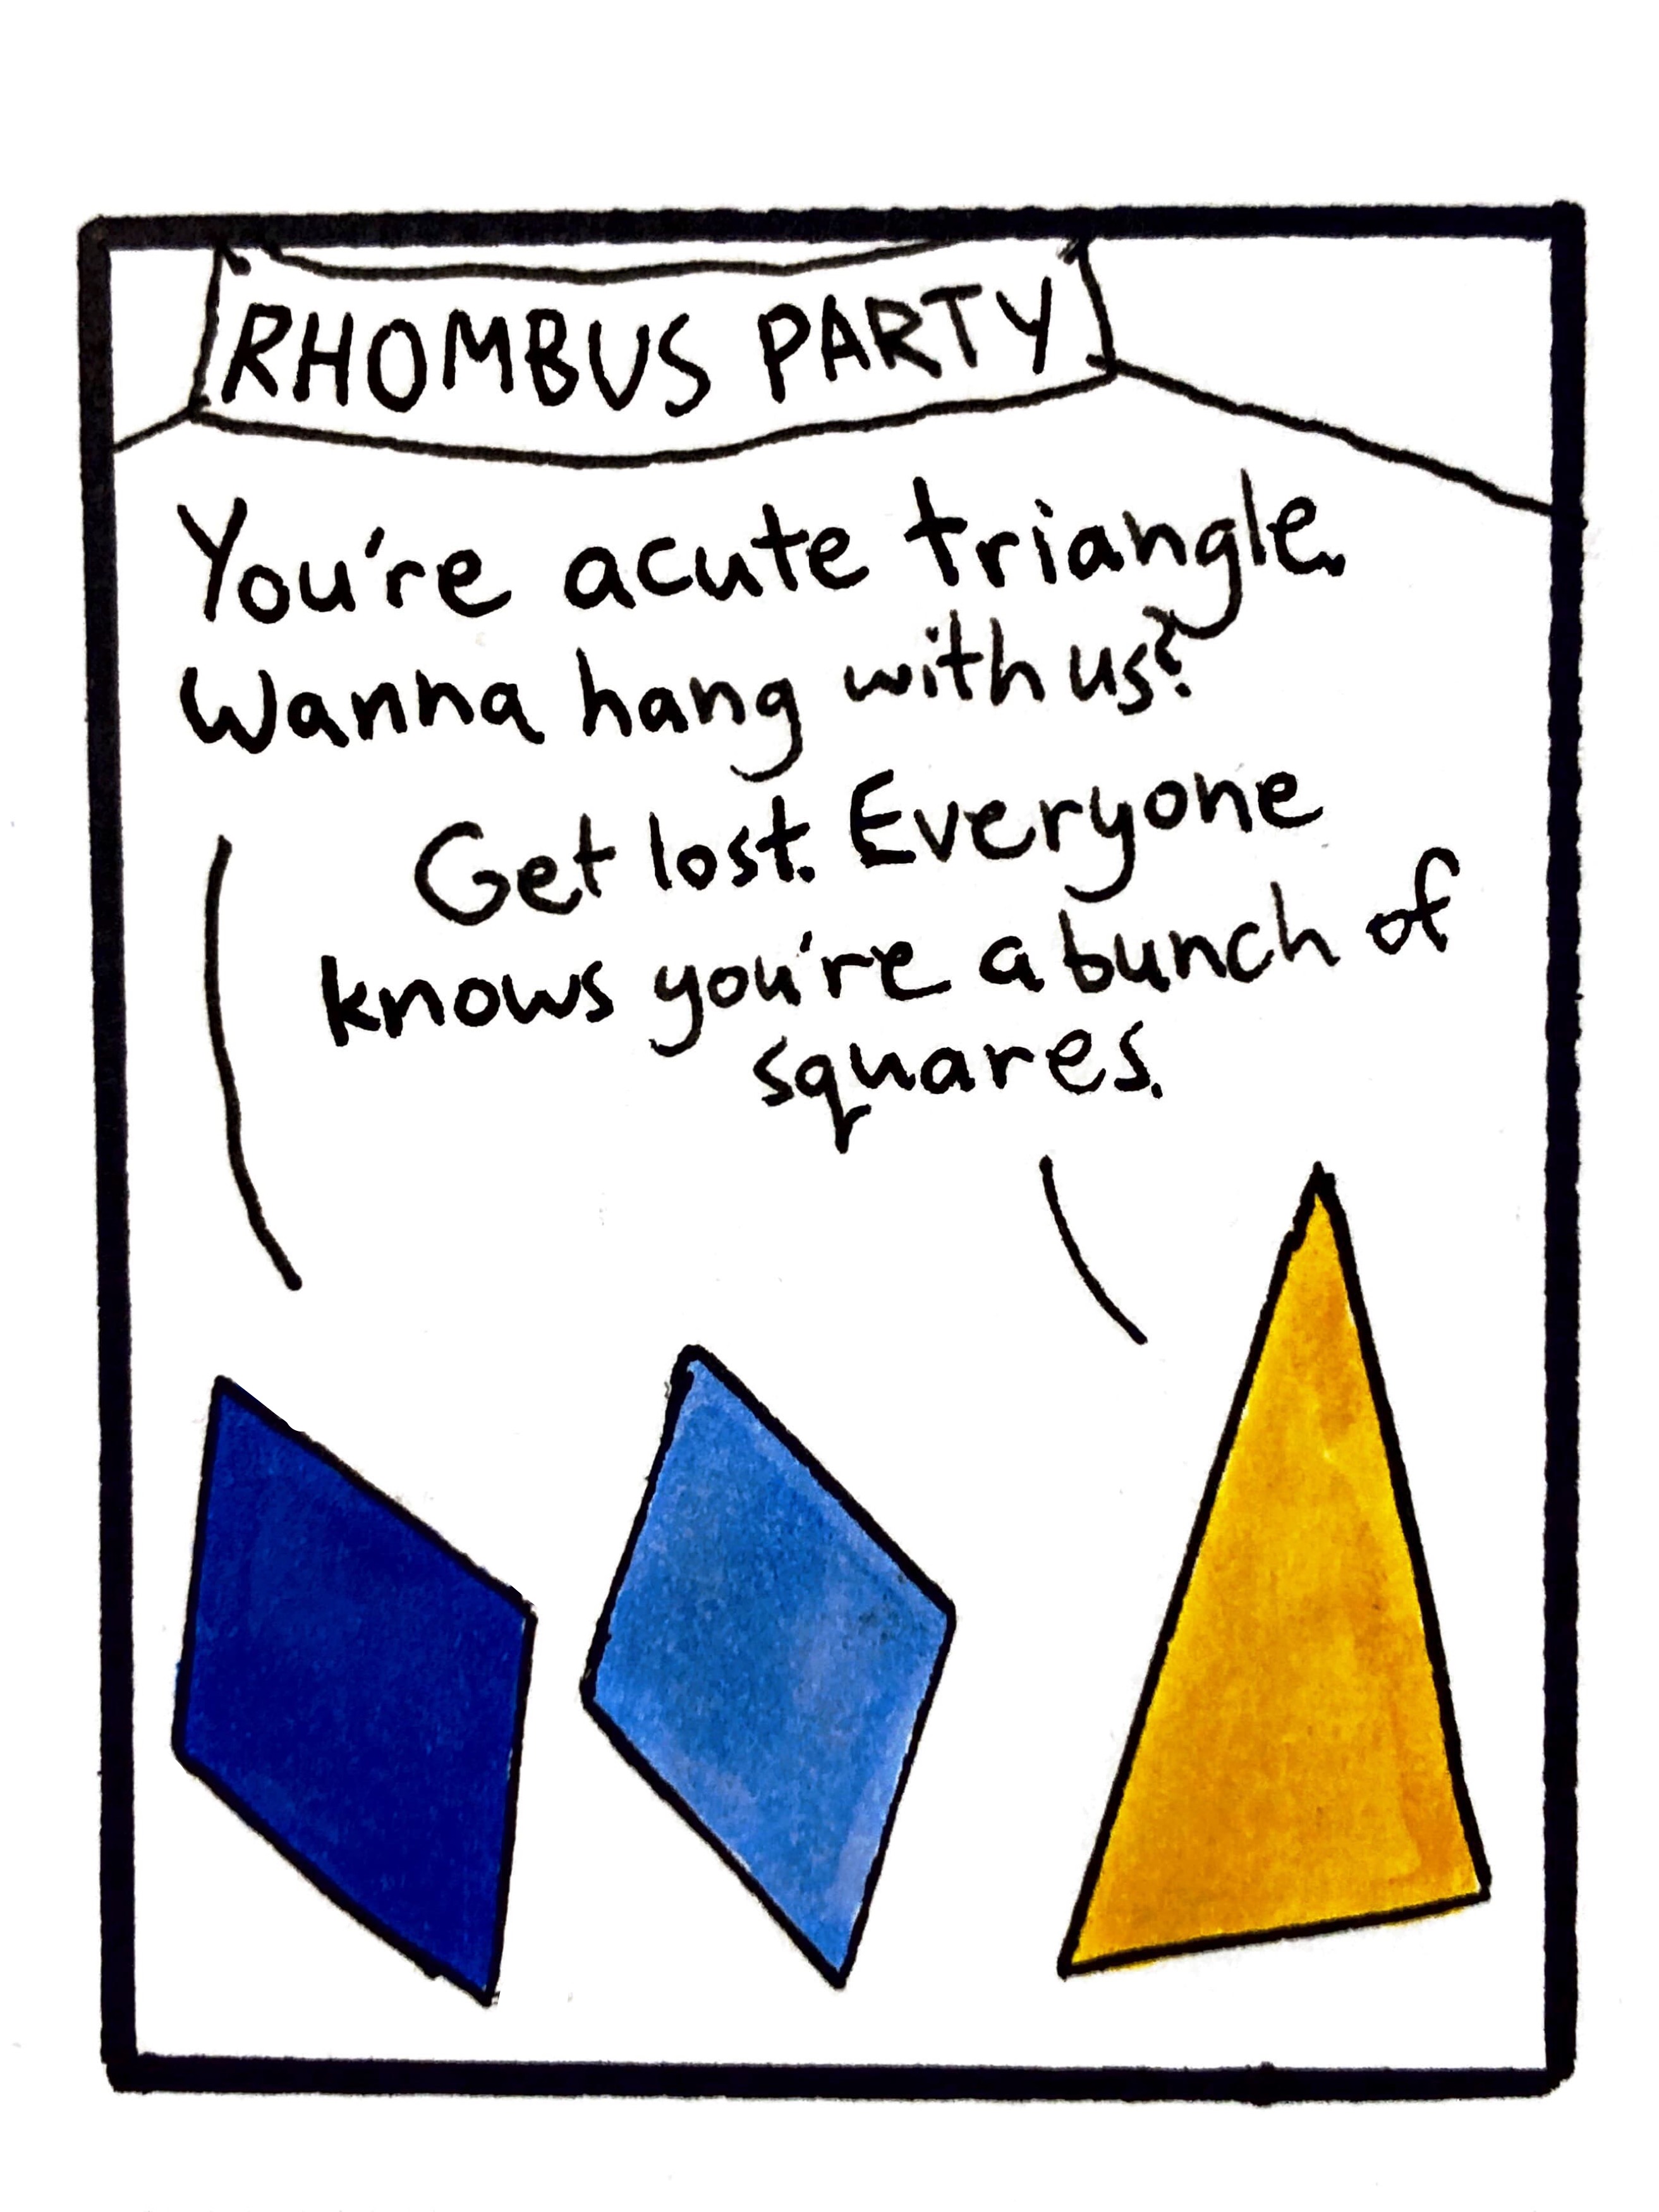 RHOMBUS PARTY
You're acute triangle.
Wanna hang with us?
Get lost. Everyone
knows you're a bunch of
squares.